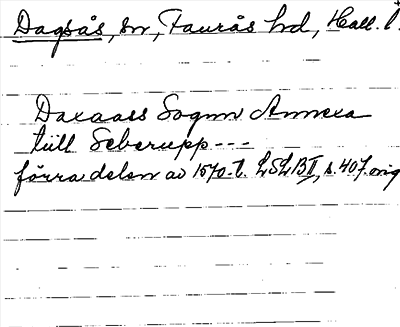 Dagsås, sn, Faurås hd, Hall. l.
Daxaass Sognn Annexa
till Seberupp---
förra delen av 1570-t. LSLB II, s. 407. orig